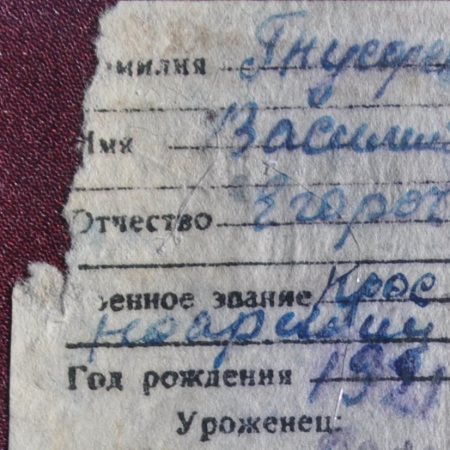 милия Гнусаре
Имя Василий
Отчество Егоро
енное звание Крас
ноармеец
Год рождения
Уроженец: